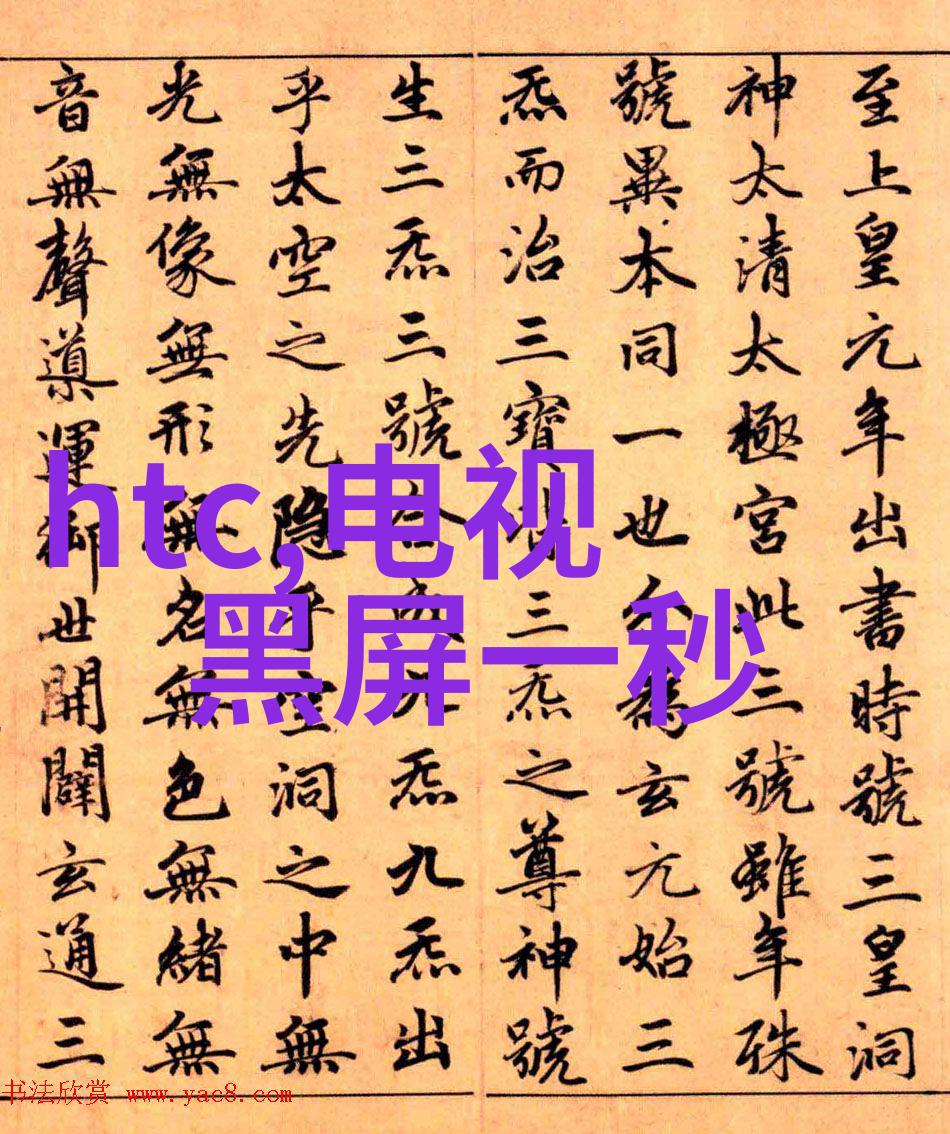 至上皇元年出書時號三皇洞
神太清太極宮此三號雖年殊
號異本同一也分為玄元始三
炁而治三寶皆三炁之尊神號
生三炁三號合成九炁九炁出
乎太空之先隐乎空洞之中無
光無像無形無名無色無緒無
音無聲導運御世開闢玄通三
htc,电视
黑屏一秒
书法欣赏 www.yac8.com